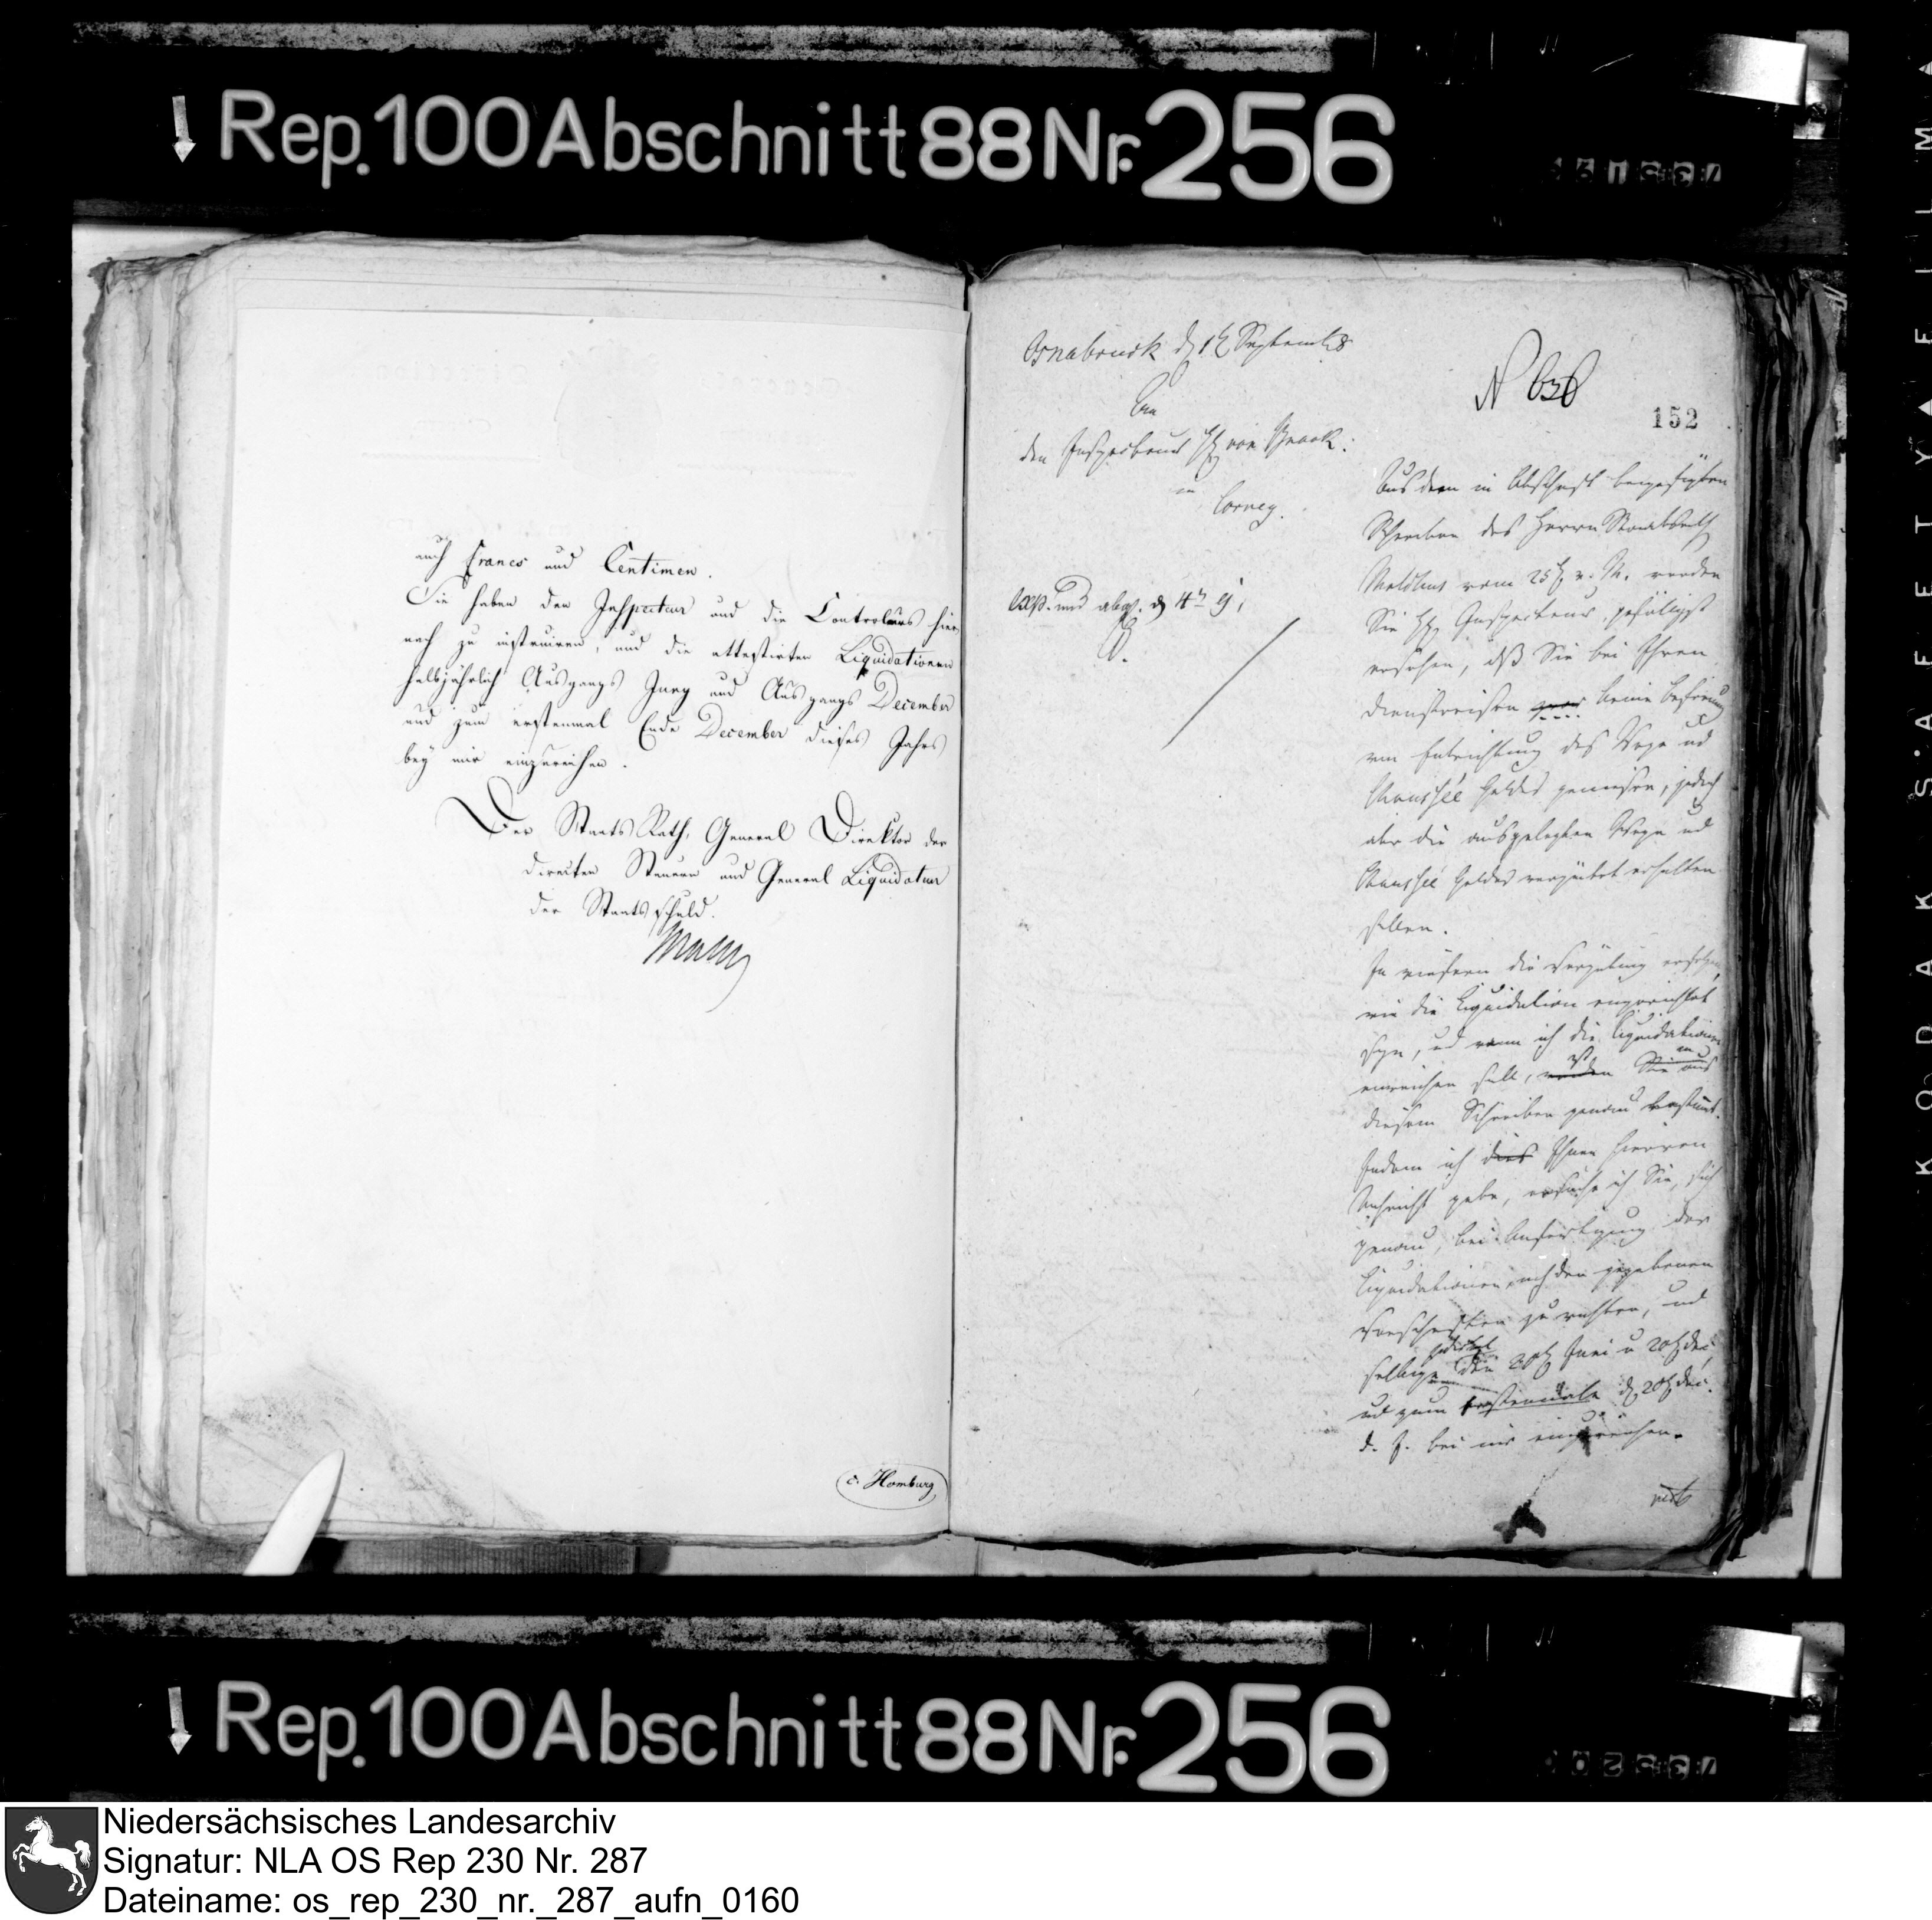 Rep. 100 Abschnitt 88 Nr. 256
auch Francs und Centimen.
Sie haben den Inspecteur und die Controleurs hier
nach zu instruiren, und die attestirten Liquidationen
halbjährlich Ausgangs Juny und Ausgangs December
und zum erstenmal Ende December dieses Jahrs
bey mir einzureichen.
Der Staats Rath, General Direktor der
directen Steuern und General Liquidateur
der Staatsschuld.
c. Homburg
Osnabrück d. September
An
den Inspecteur von
in
Corvey.
N 636
152
Aus dem in Abschrift beigefügten
Schreiben des Herrn Staatsrath
Malchus vom 25 v. M. werden
Sie Inspecteur, gefälligst
ersehen, daß Sie bei Ihren
Dienstreisen keine Befreiung
von Entrichtung des Wege und
Chaussée Geldes geniessen, jedoch
aber die ausgelegten Wege und
Chaussée Gelder vergütet erhalten
sollen.
In wiefern die Vergütung erfolgen,
wie die Liquidation eingerichtet
seyn, und wann ich die Liquidationen
einreichen soll,
diesem Schreiben genau bestimt.
Indem ich dies Ihnen hievon
Nachricht gebe, ersuche ich Sie, sich
genau, bei Anfertigung der
Liquidationen nach den gegebenen
Vorschriften zu richten, und
selbige den Juni u 20 Dec.
und zum erstenmale d 20 Dec.
d. J. bei mir einzureichen.
Rep. 100 Abschnitt 88 Nr. 256
Niedersächsisches Landesarchiv
Signatur: NLA OS Rep 230 Nr. 287
Dateiname: os_rep_230_nr._287_aufn_0160
KODAK SAFETY FILM